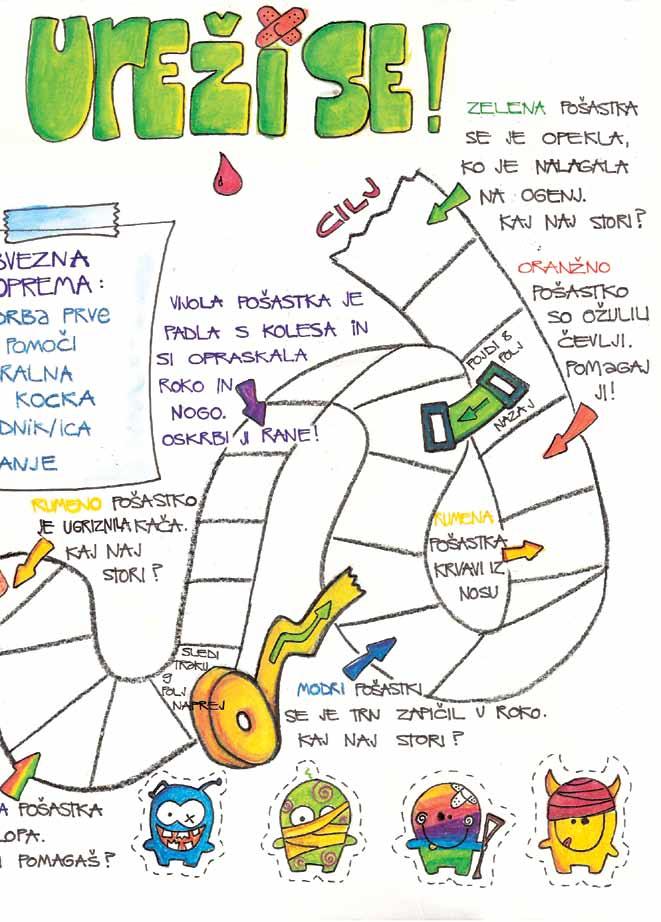 UREŽI SE!
ZELENA POŠASTKA
SE JE OPEKLA,
KO JE NALAGALA
NA OGENJ.
KAJ NAJ STORI?
CILJ
ORANŽNO
POŠASTKO
SO OŽULILI
ČEVLJI.
POMAGAJ
JI!
POJDI 8
POLJ
NAZAJ
VIJOLA POŠASTKA JE
PADLA S KOLESA IN
SI OPRASKALA
ROKO IN
NOGO.
OSKRBI JI RANE!
BVEZNA
OPREMA:
ORBA PRVE
POMOČI
RALNA
KOCKA
DNIK/ICA
ANJE
RUMENO POŠASTKO
JE UGRIZNILA KAČA.
KAJ NAJ
STORI?
RUMENA
POŠASTKA
KRVAVI IZ
NOSU
SLEDI
TRAKU
9
POLJ
NAPREJ
MODRI POŠASTKI
SE JE TRN ZAPIČIL V ROKO.
KAJ NAJ STORI?
A POŠASTKA
LOPA.
I POMAGAŠ?